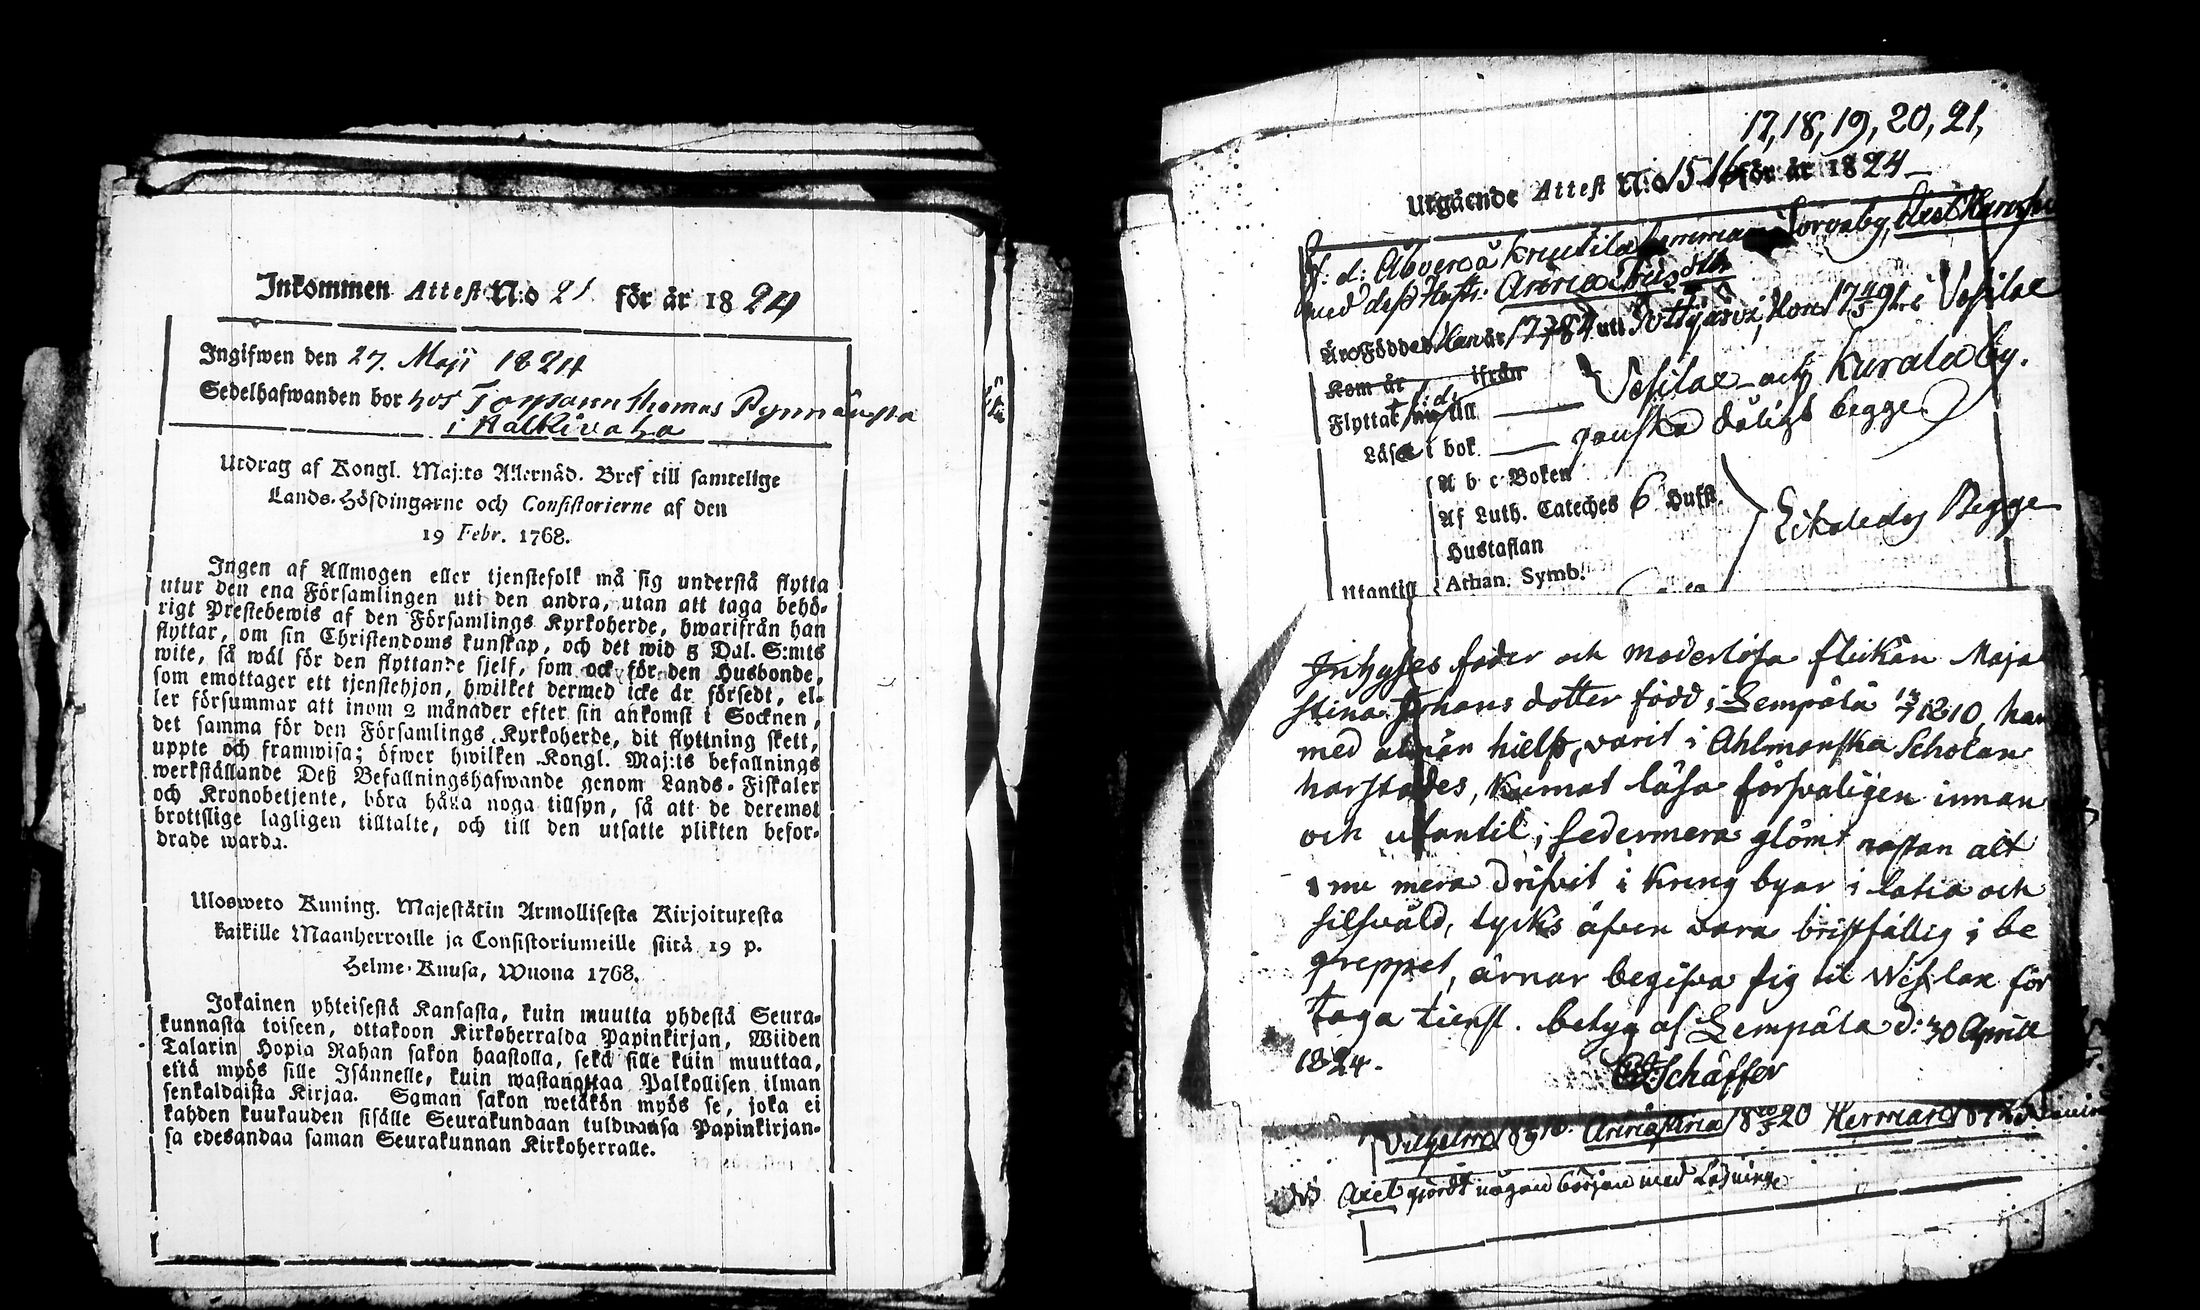 Inkommen Attest N:o 21 för år 1824
Ingifwen den 27. Maji 1824
Sedelhafwanden bor hos Tomas Pynnä
i Kalkivaha
Utdrag af Kongl. Maj:ts Allernåd. Bref till samtelige
Lands-Höfdingarne och Consistorierne af den
19 Febr. 1768.
Ingen af Allmogen eller tjenstefolk må sig understå flytta
utur den ena Församlingen uti den andra, utan att taga behö-
rigt Prestebewis af den Församlings Kyrkoherde, hwarifrån han
flyttar, om sin Christendoms kunskap, och det wid 5 Dal. S:mts
wite, så wäl för den flyttande sjelf, som ock för den Husbonde,
som emottager ett tjenstehjon, hwilket dermed icke är försedt, el-
ler försummar att inom 2 månader efter sin ankomst i Socknen,
det samma för den Församlings Kyrkoherde, dit flyttning skett,
uppte och framwisa; öfwer hwilken Kongl. Maj:ts befallnings
werkställande Deß Befallningshafwande genom Lands-Fiskaler
och Kronobetjente, böra hålla noga tillsyn, så att de deremot
brottslige lagligen tilltalte, och till den utsatte plikten befor-
drade warda.
Ulosweto Kuning. Majestätin Armollisesta Kirjoituxesta
kaikille Maanherroille ja Consistoriumeille siitä 19 p.
Helme-Kuusa, Wuona 1768.
Jokainen yhteisestä Kansasta, kuin muutta yhdestä Seura-
kunnasta toiseen, ottakoon Kirkoherralda Papinkirjan, Wiiden
Talarin Hopia Rahan sakon haastolla, sekä sille kuin muuttaa,
että myös sille Isännelle, kuin wastanottaa Palkollisen ilman
senkaldaista Kirjaa. Saman sakon wetäkön myös se, joka ei
kahden kuukauden sisälle Seurakundaan tulduansa Papinkirjan-
sa edesandaa saman Seurakunnan Kirkoherralle.
17, 18, 19, 20, 21,
Utgående Attest N:o 15 16 för år 1824
f: d: Åboern å Krutila hemman
med deß Hustr: Anna
Äro Födde Han år uti Pottjärvi, Hon i Vesilax
Kom år ifrån
Flyttat till Vesilax och Kurala by.
Läse i bok ganska dåligt begge
A b c Boken
Af Luth. Cateches 6 Hufst.
Hustaflan
Athan. Symb.
Utantill
Begge
fader och moderlösa flickan Maja
stina Johans dotter född i Lempälä 1810, har
med almän hielp, varit i Ahlmanska Scholan
harstädes, kunnat läsa försvaligen innan
och utantil; sedermera glömt nästan alt
nu mera drifvit i kring byar i latia och
silfvåld, tycks äfven vara bristfällig i be
greppet, ärnar begifva sig til Weslax för
taga tienst. betyg af Lempälä d: 30 Aprill
1824.
Schäffer
Vilhelm Anna Maria 1820 Herman
gjordt någon början med Läsning